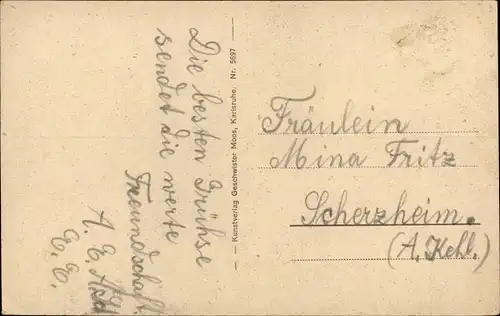 Die besten Grühse
sendet die werte
Freundschaft.
A. E.
E. E.
— Kunstverlag Geschwister Moos, Karlsruhe. Nr. 5697 —
Fräulein
Mina Fritz
Scherzheim.
(A. Kehl.)